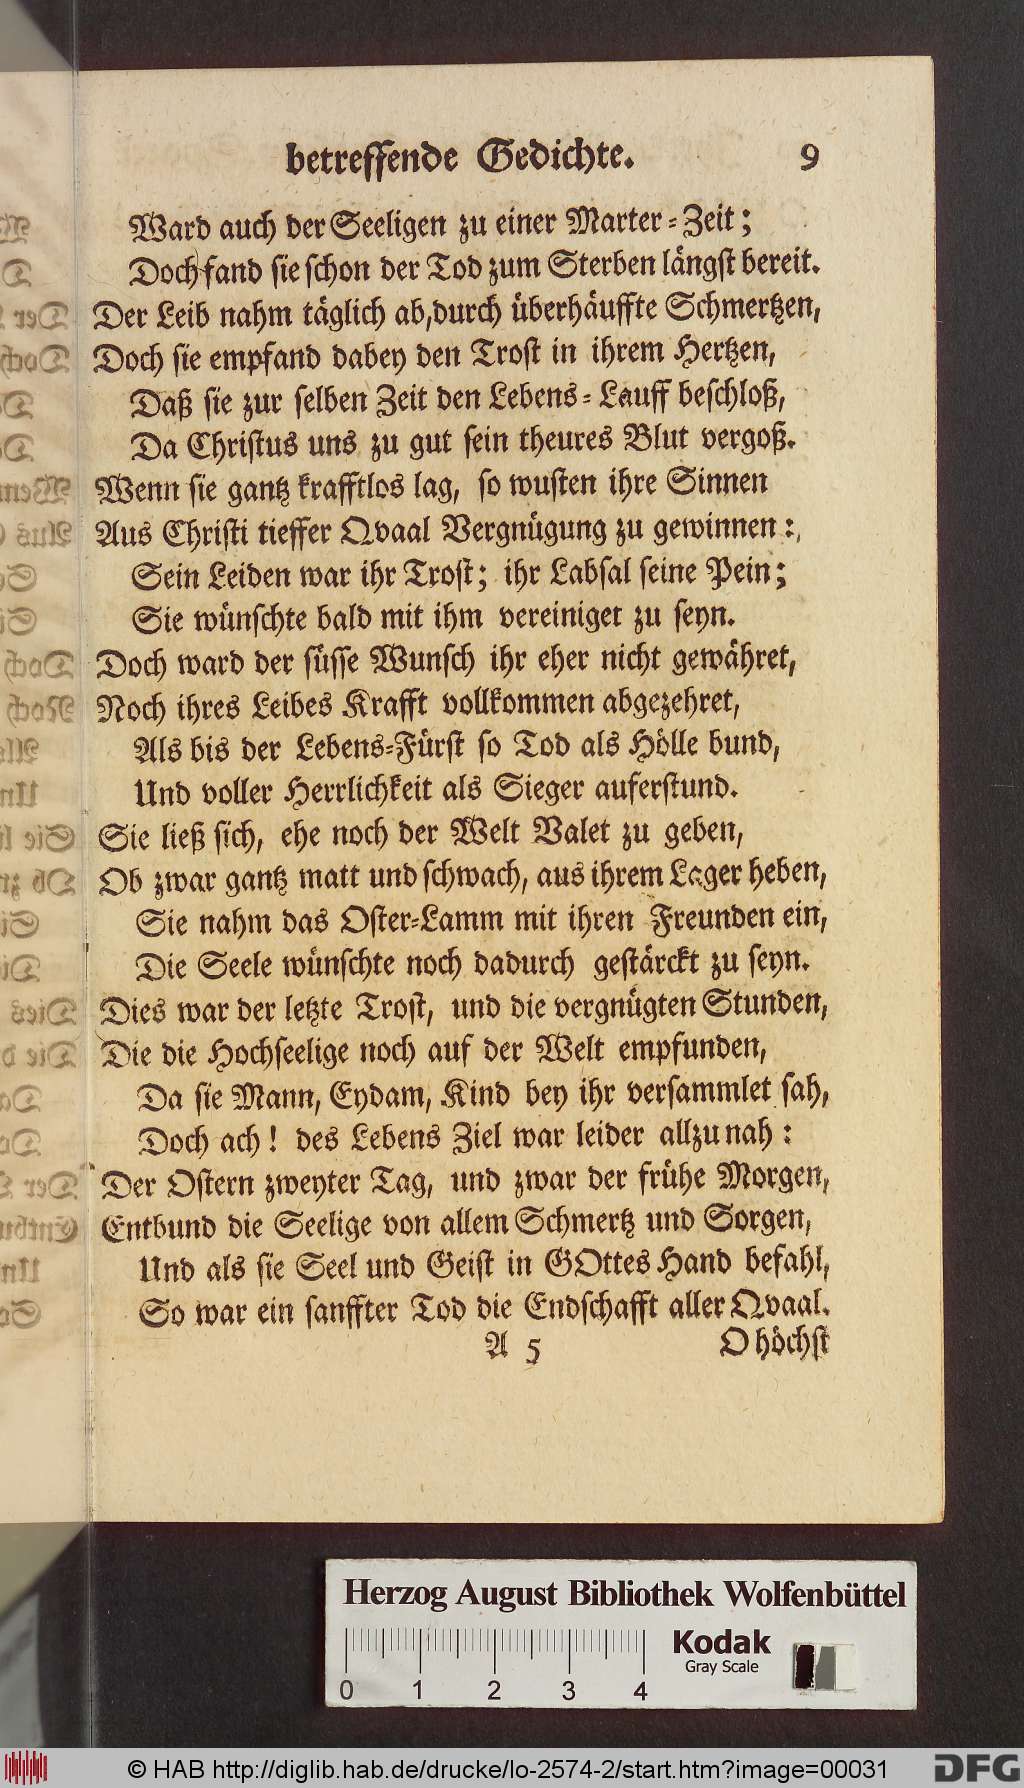 betreffende Gedichte. 9
Ward auch der Seeligen zu einer Marter-Zeit;
Doch fand sie schon der Tod zum Sterben längst bereit.
Der Leib nahm täglich ab, durch überhäuffte Schmertzen,
Doch sie empfand dabey den Trost in ihrem Hertzen,
Daß sie zur selben Zeit den Lebens-Lauff beschloß,
Da Christus uns zu gut sein theures Blut vergoß.
Wenn sie gantz krafftlos lag, so wusten ihre Sinnen
Aus Christi tieffer Qvaal Vergnügung zu gewinnen:
Sein Leiden war ihr Trost; ihr Labsal seine Pein;
Sie wünschte bald mit ihm vereiniget zu seyn.
Doch ward der süsse Wunsch ihr eher nicht gewähret,
Noch ihres Leibes Krafft vollkommen abgezehret,
Als bis der Lebens-Fürst so Tod als Hölle bund,
Und voller Herrlichkeit als Sieger auferstund.
Sie ließ sich, ehe noch der Welt Valet zu geben,
Ob zwar gantz matt und schwach, aus ihrem Lager heben,
Sie nahm das Oster-Lamm mit ihren Freunden ein,
Die Seele wünschte noch dadurch gestärckt zu seyn.
Dies war der letzte Trost, und die vergnügten Stunden,
Die die Hochseelige noch auf der Welt empfunden,
Da sie Mann, Eydam, Kind bey ihr versammlet sah,
Doch ach! des Lebens Ziel war leider allzu nah:
Der Ostern zweyter Tag, und zwar der frühe Morgen,
Entbund die Seelige von allem Schmertz und Sorgen,
Und als sie Seel und Geist in GOttes Hand befahl,
So war ein sanffter Tod die Endschafft aller Qvaal.
A 5 O höchst
Herzog August Bibliothek Wolfenbüttel
Kodak
Gray Scale
0 1 2 3 4
© HAB http://diglib.hab.de/drucke/lo-2574-2/start.htm?image=00031
DFG